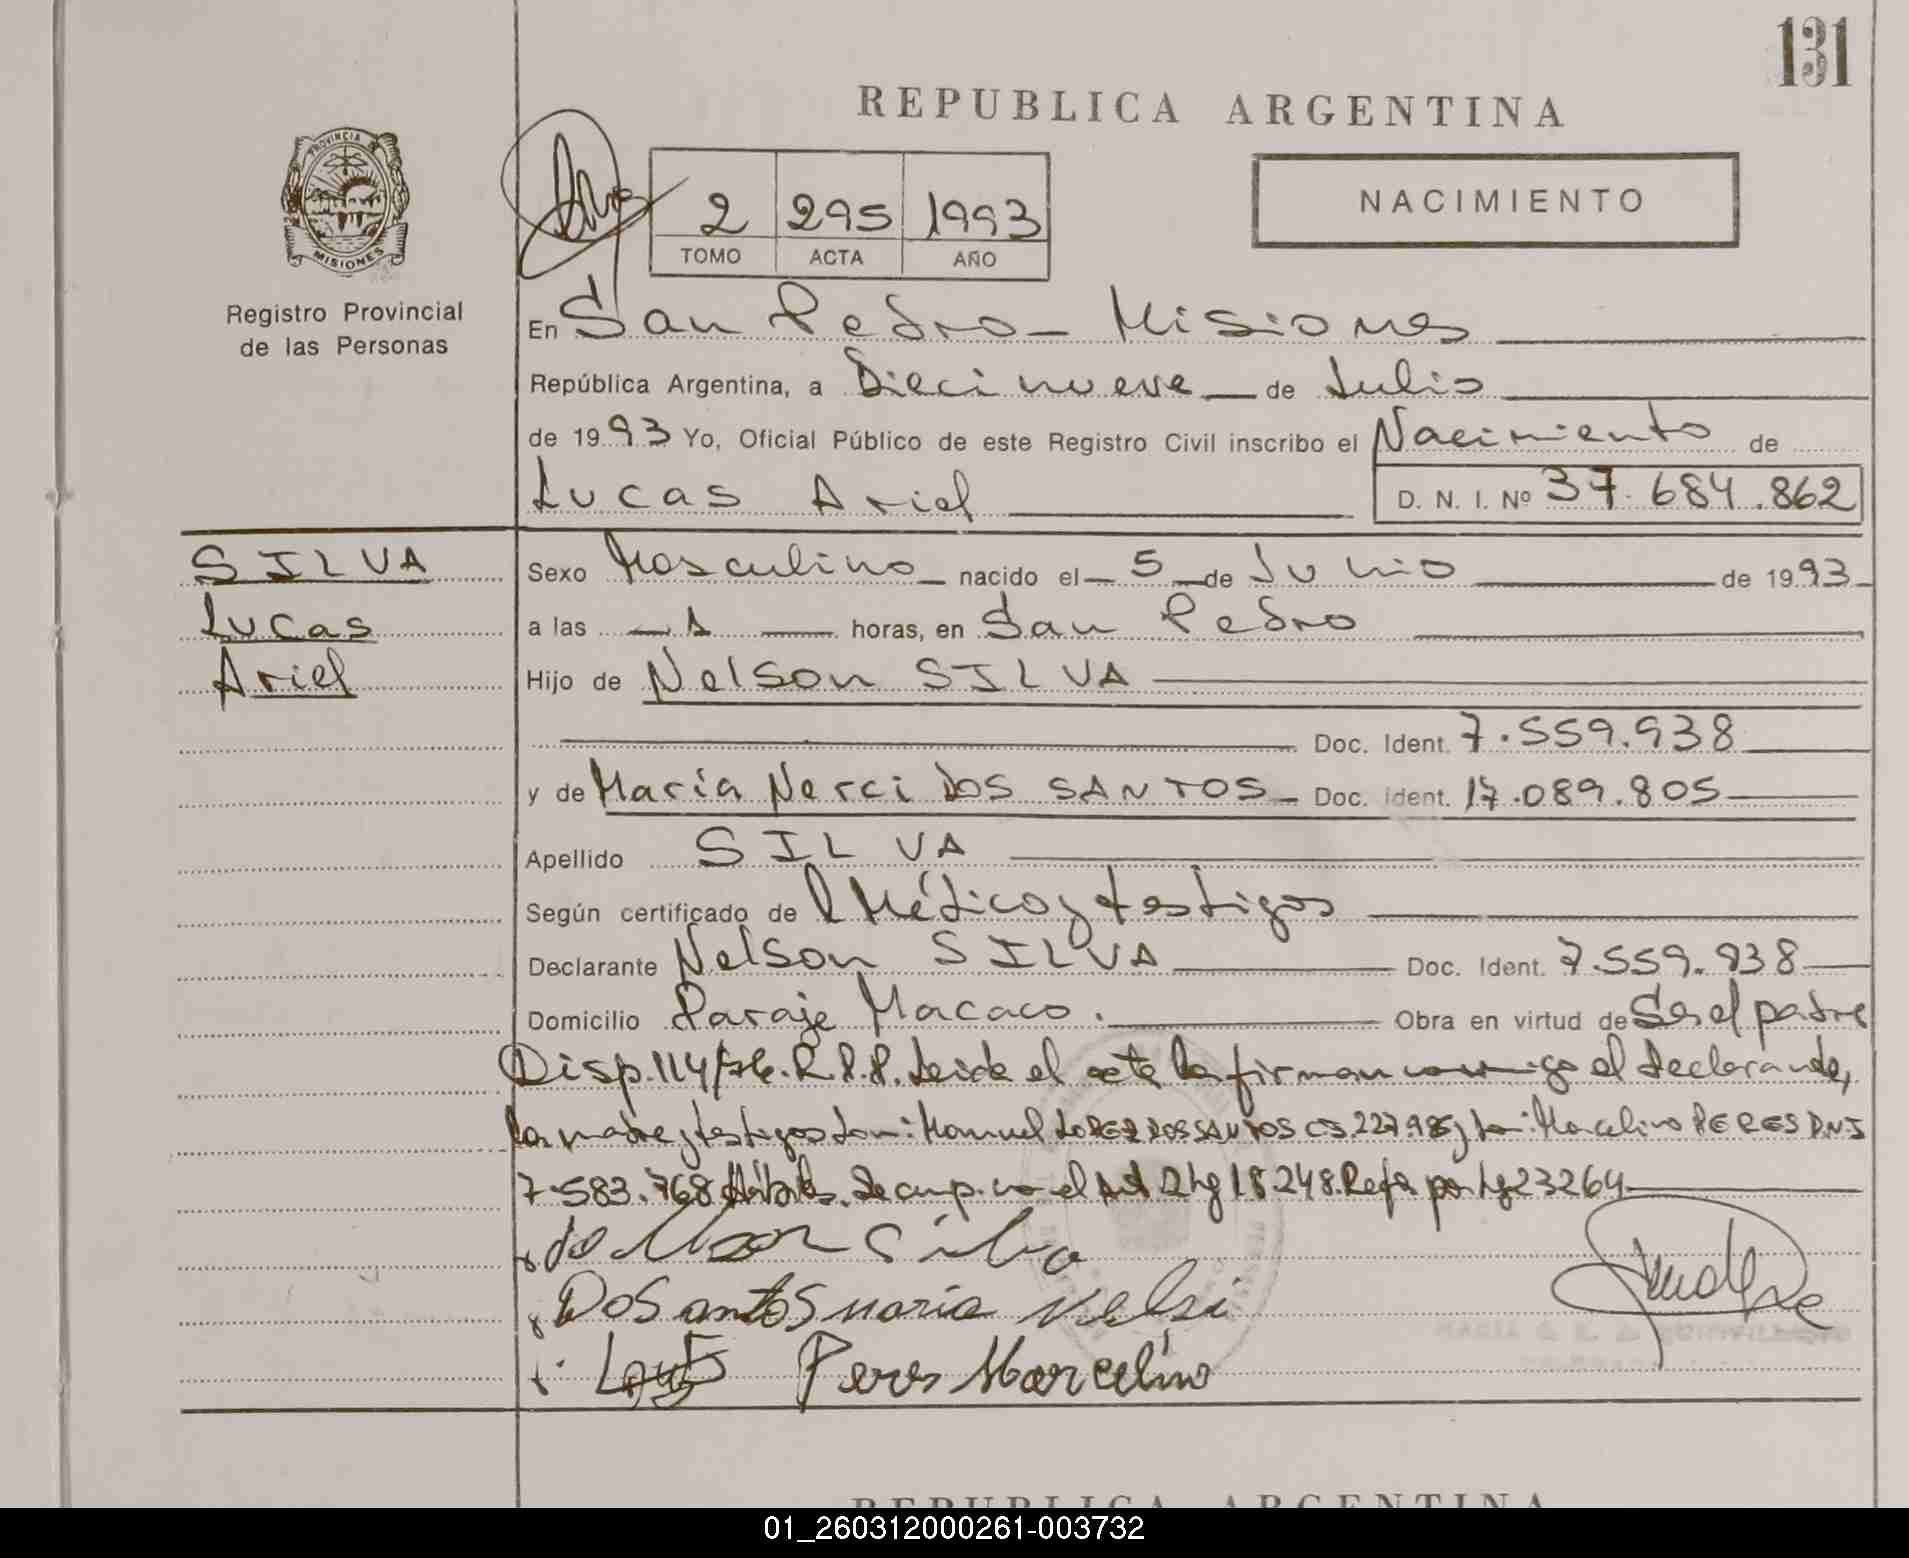 131
REPUBLICA ARGENTINA
PROVINCIA DE
MISIONES
Registro Provincial
de las Personas
2 295 1993
TOMO ACTA AÑO
NACIMIENTO
En San Pedro - Misiones
República Argentina, a Dieci nueve de Julio
de 1993 Yo, Oficial Público de este Registro Civil inscribo el Nacimiento de
Lucas Ariel D. N. I. Nº 37.684.862
SILVA
Lucas
Ariel
Sexo Masculino nacido el 5 de Julio de 1993
a las 1 horas, en San Pedro
Hijo de Nelson SILVA
Doc. Ident. 7.559.938
y de María Nerci DOS SANTOS Doc. Ident. 17.089.805
Apellido SILVA
Según certificado de Médico y testigos
Declarante Nelson SILVA Doc. Ident. 7.559.938
Domicilio Paraje Macaco. Obra en virtud de Ser el padre
Disp. 114/ R.P.P. Leida el acta la firman conmigo el declarante,
la madre y testigos Don: Manuel LOPEZ DOS SANTOS CI. 227.985 y Don: Marcelino PERES DNI
7.583.768 Hábiles. Se cump. con el Art 2 Ley 18.248. Refa por Ley 23264
Silva
Dosantos maria Nelsi
Peres Marcelino
REPUBLICA ARGENTINA
01_260312000261-003732